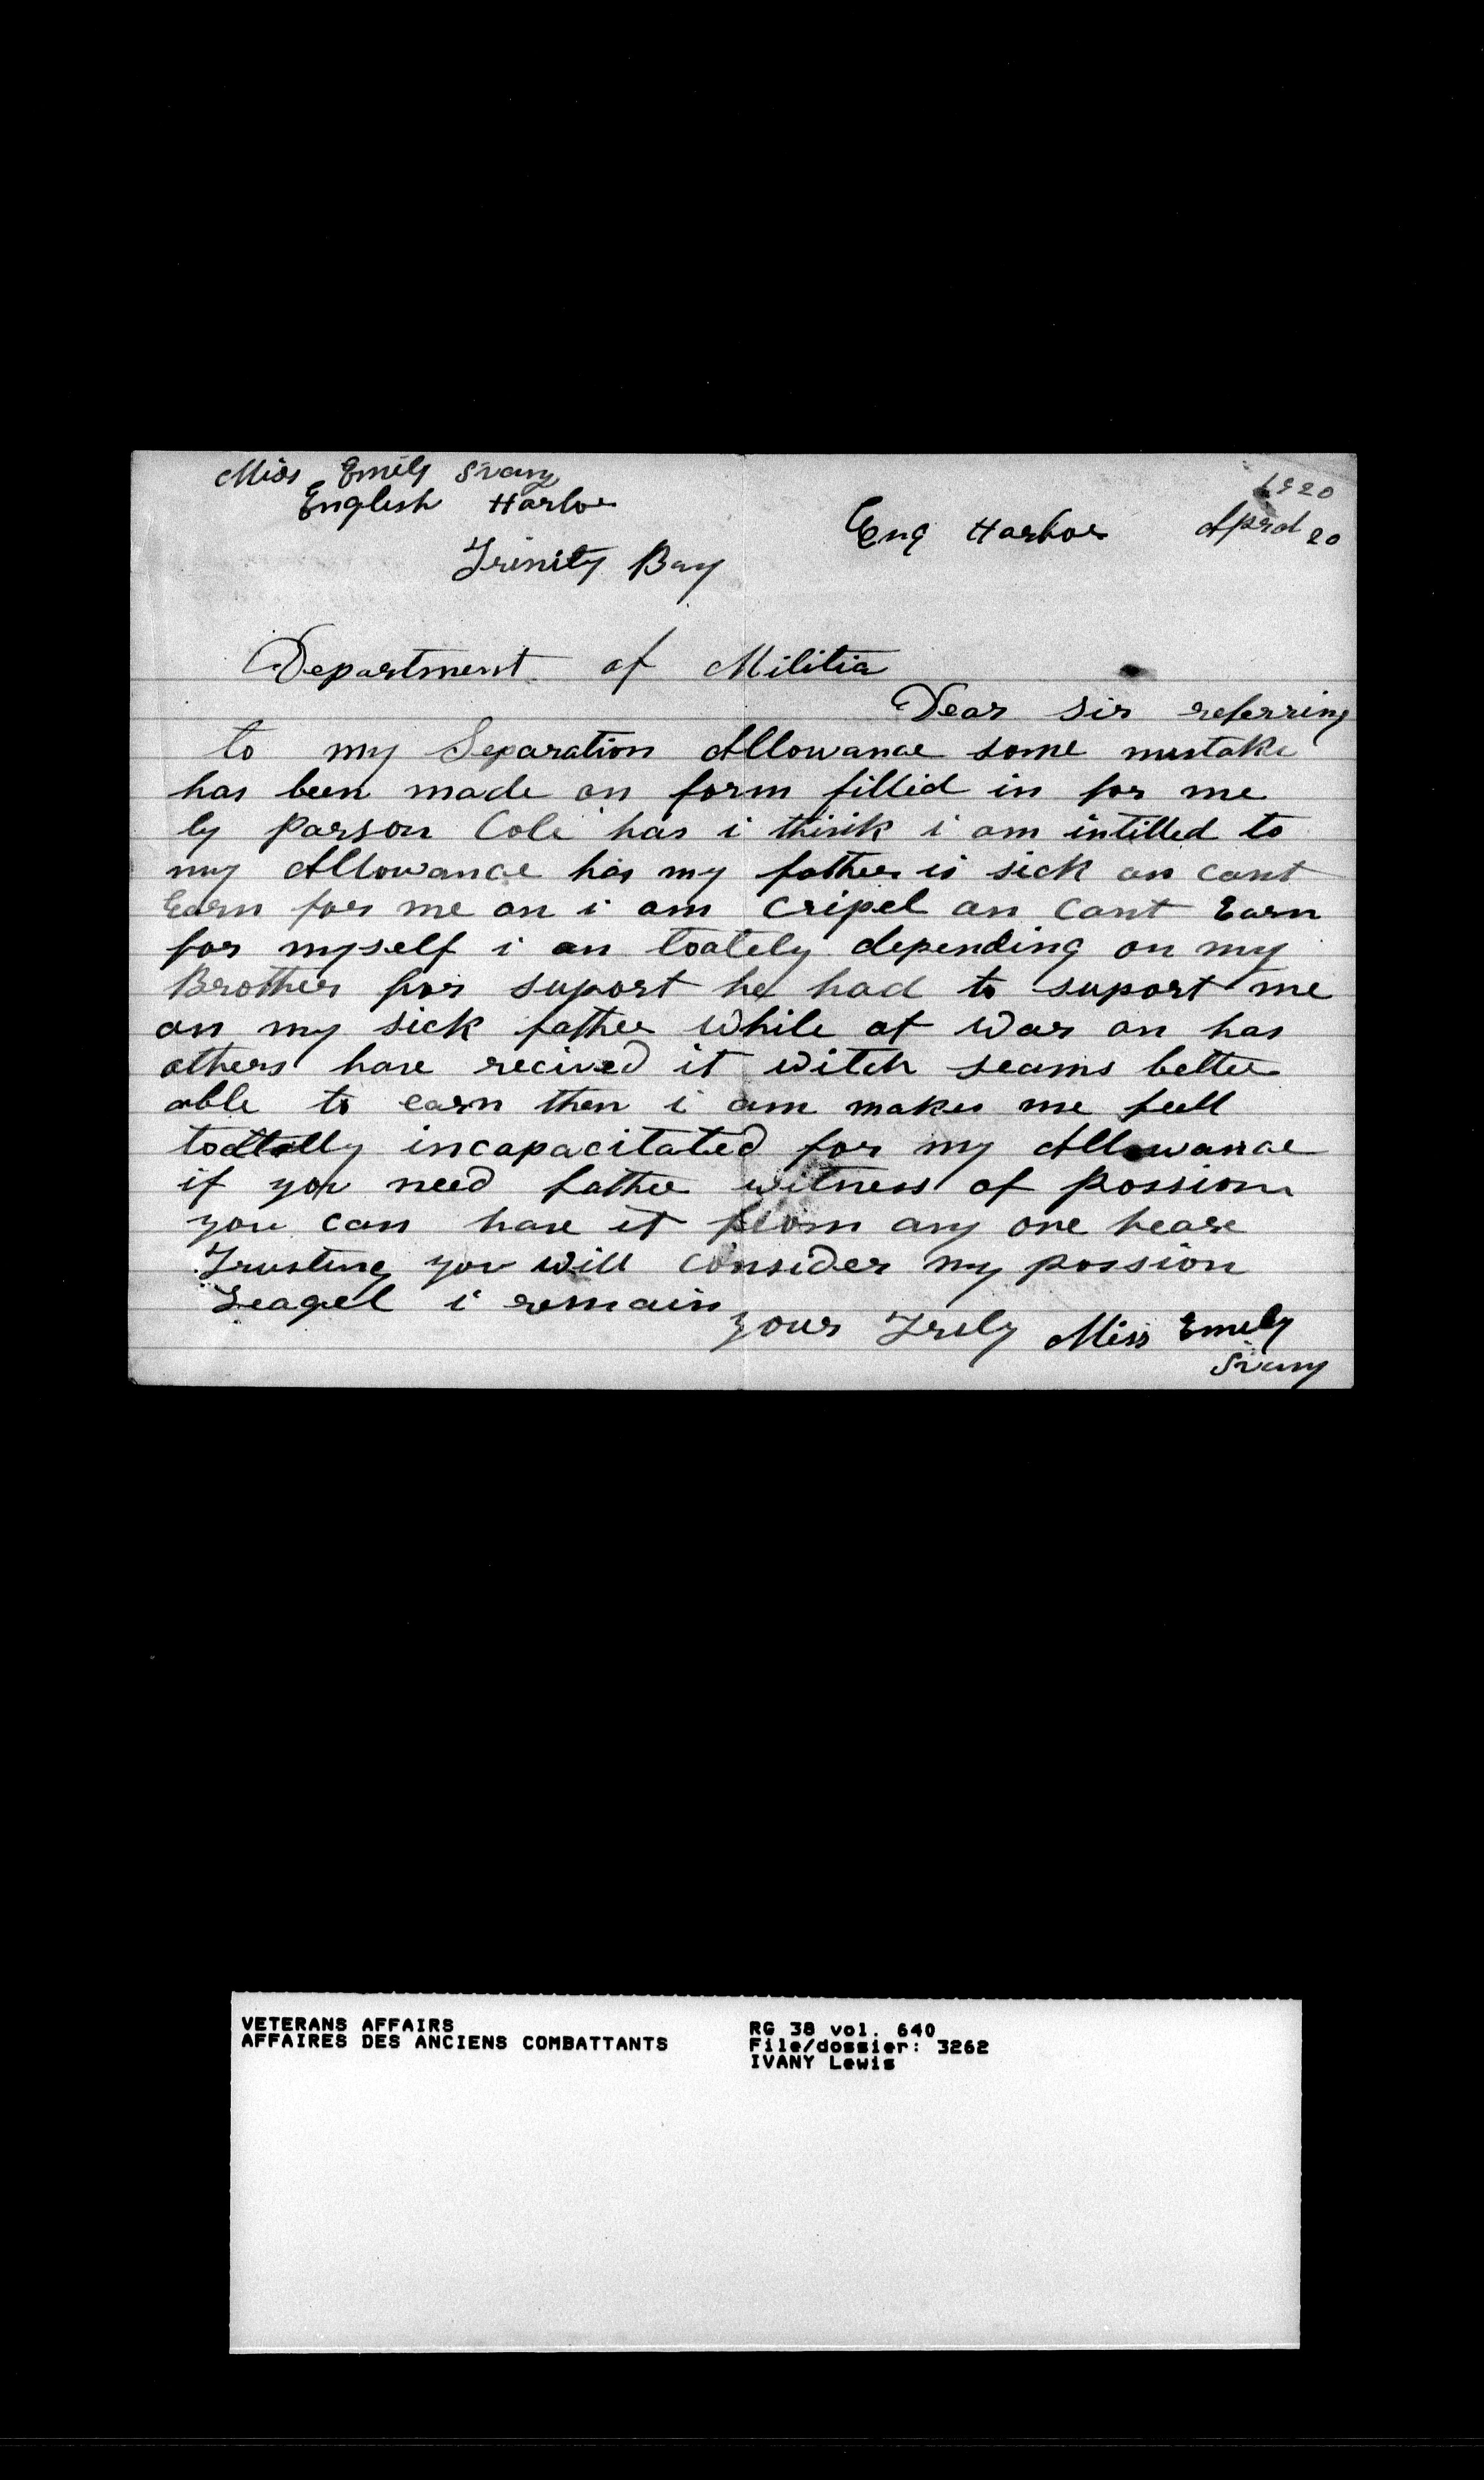 Miss Emily Ivany
English Harbor
Trinity Bay
1920
Eng Harbor April 20
Department of Militia
Dear Sir referring
to my Separation Allowance some mistake
has been made on form fillid in for me
by Parson Cole has i think i am intilled to
my Allowance has my father is sick an cant
Earn for me an i am Cripel an Cant Earn
for myself i an toately depending on my
Brother for suport he had to suport me
an my sick father while at War an has
others have recived it witch seams better
able to earn then i am makes me feell
toattally incapacitated for my Allowance
if you need father witness of possion
you can have it from any one heare
Trusting you will consider my possion
Leagel i remain
yours Truly Miss Emily
Ivany
VETERANS AFFAIRS
AFFAIRES DES ANCIENS COMBATTANTS
RG 38 vol. 640
File/dossier: 3262
IVANY Lewis